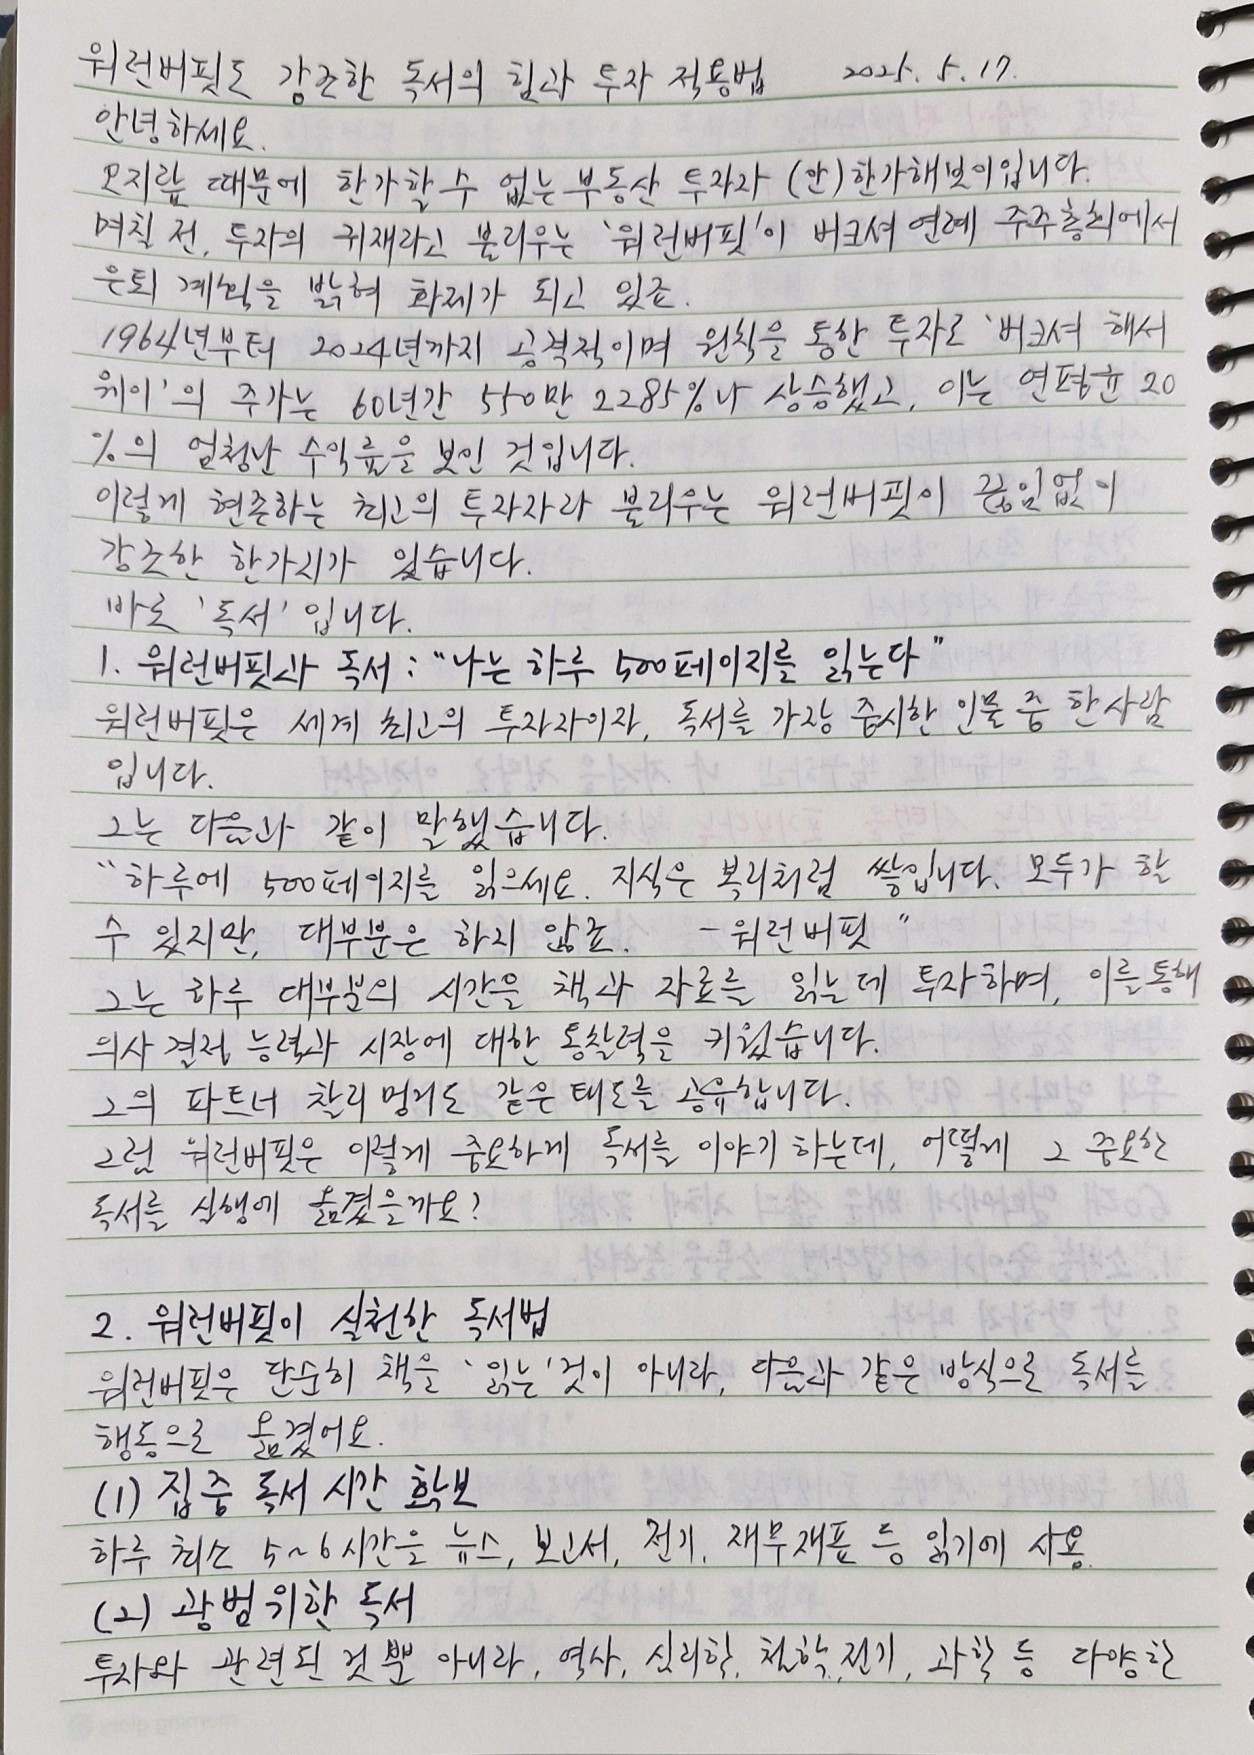 워런버핏도 강조한 독서의 힘과 투자 적용법 2025. 5. 17.
안녕하세요.
오지랖 때문에 한가할 수 없는 부동산 투자자 (안)한가해보이입니다.
며칠 전, 투자의 귀재라고 불리우는 '워런버핏'이 버크셔 연례 주주총회에서
은퇴 계획을 밝혀 화제가 되고 있죠.
1964년부터 2024년까지 공격적이며 원칙을 통한 투자로 '버크셔 해서
웨이'의 주가는 60년간 550만 2285%나 상승했고, 이는 연평균 20
%의 엄청난 수익률을 보인 것입니다.
이렇게 현존하는 최고의 투자자라 불리우는 워런버핏이 끊임없이
강조한 한가지가 있습니다.
바로 '독서' 입니다.
1. 워런버핏과 독서 : "나는 하루 500페이지를 읽는다"
워런버핏은 세계 최고의 투자자이자, 독서를 가장 중시한 인물 중 한사람
입니다.
그는 다음과 같이 말했습니다.
"하루에 500페이지를 읽으세요. 지식은 복리처럼 쌓입니다. 모두가 할
수 있지만, 대부분은 하지 않죠. - 워런버핏"
그는 하루 대부분의 시간을 책과 자료를 읽는데 투자하며, 이를 통해
의사 결정 능력과 시장에 대한 통찰력을 키웠습니다.
그의 파트너 찰리 멍거도 같은 태도를 공유합니다.
그럼 워런버핏은 이렇게 중요하게 독서를 이야기 하는데, 어떻게 그 중요한
독서를 실행에 옮겼을까요?
2. 워런버핏이 실천한 독서법
워런버핏은 단순히 책을 '읽는' 것이 아니라, 다음과 같은 방식으로 독서를
행동으로 옮겼어요.
(1) 집중 독서 시간 확보
하루 최소 5~6시간을 뉴스, 보고서, 전기, 재무재표 등 읽기에 사용.
(2) 광범위한 독서
투자와 관련된 것 뿐 아니라, 역사, 심리학, 철학, 전기, 과학 등 다양한